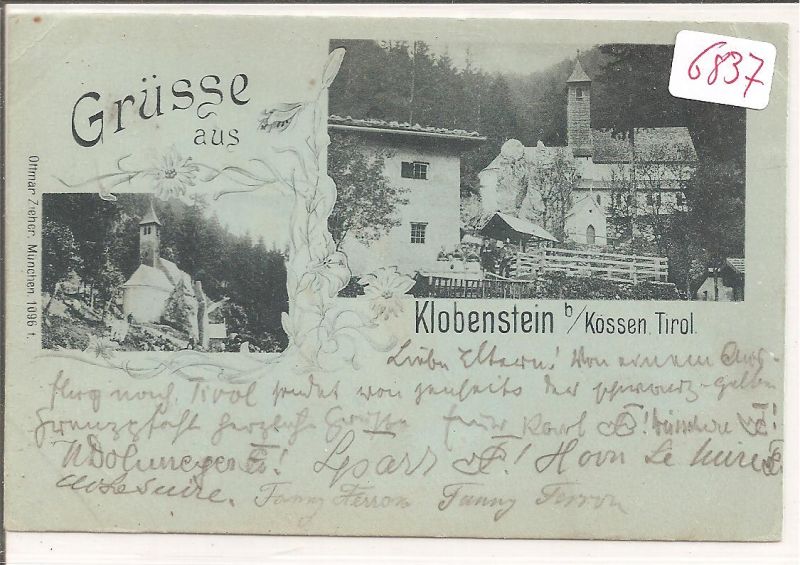 6837
Grüsse
aus
Ottmar Zieher, München. 1096 t.
Klobenstein b/Kössen, Tirol.
Liebe Eltern! Von einem Aus-
flug nach Tirol sendet von jenseits der schwarz-gelben
Grenzpfähl herzliche Grüße Karl
Sparr
Fanny Ferron Fanny Ferron